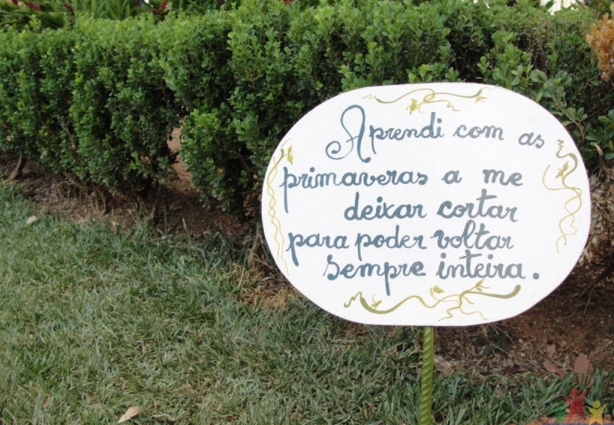 Aprendi com as
primaveras a me
deixar cortar
para poder voltar
sempre inteira.